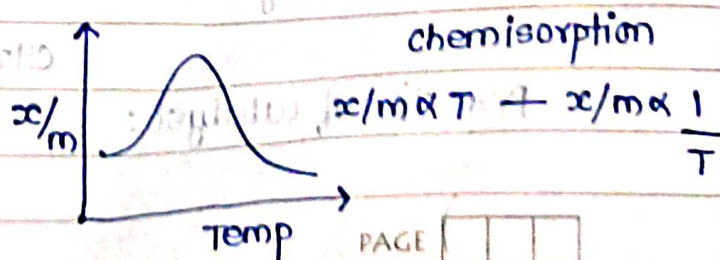 chemisorption
x/m
x/m α T — x/m α 1/T
Temp
PAGE